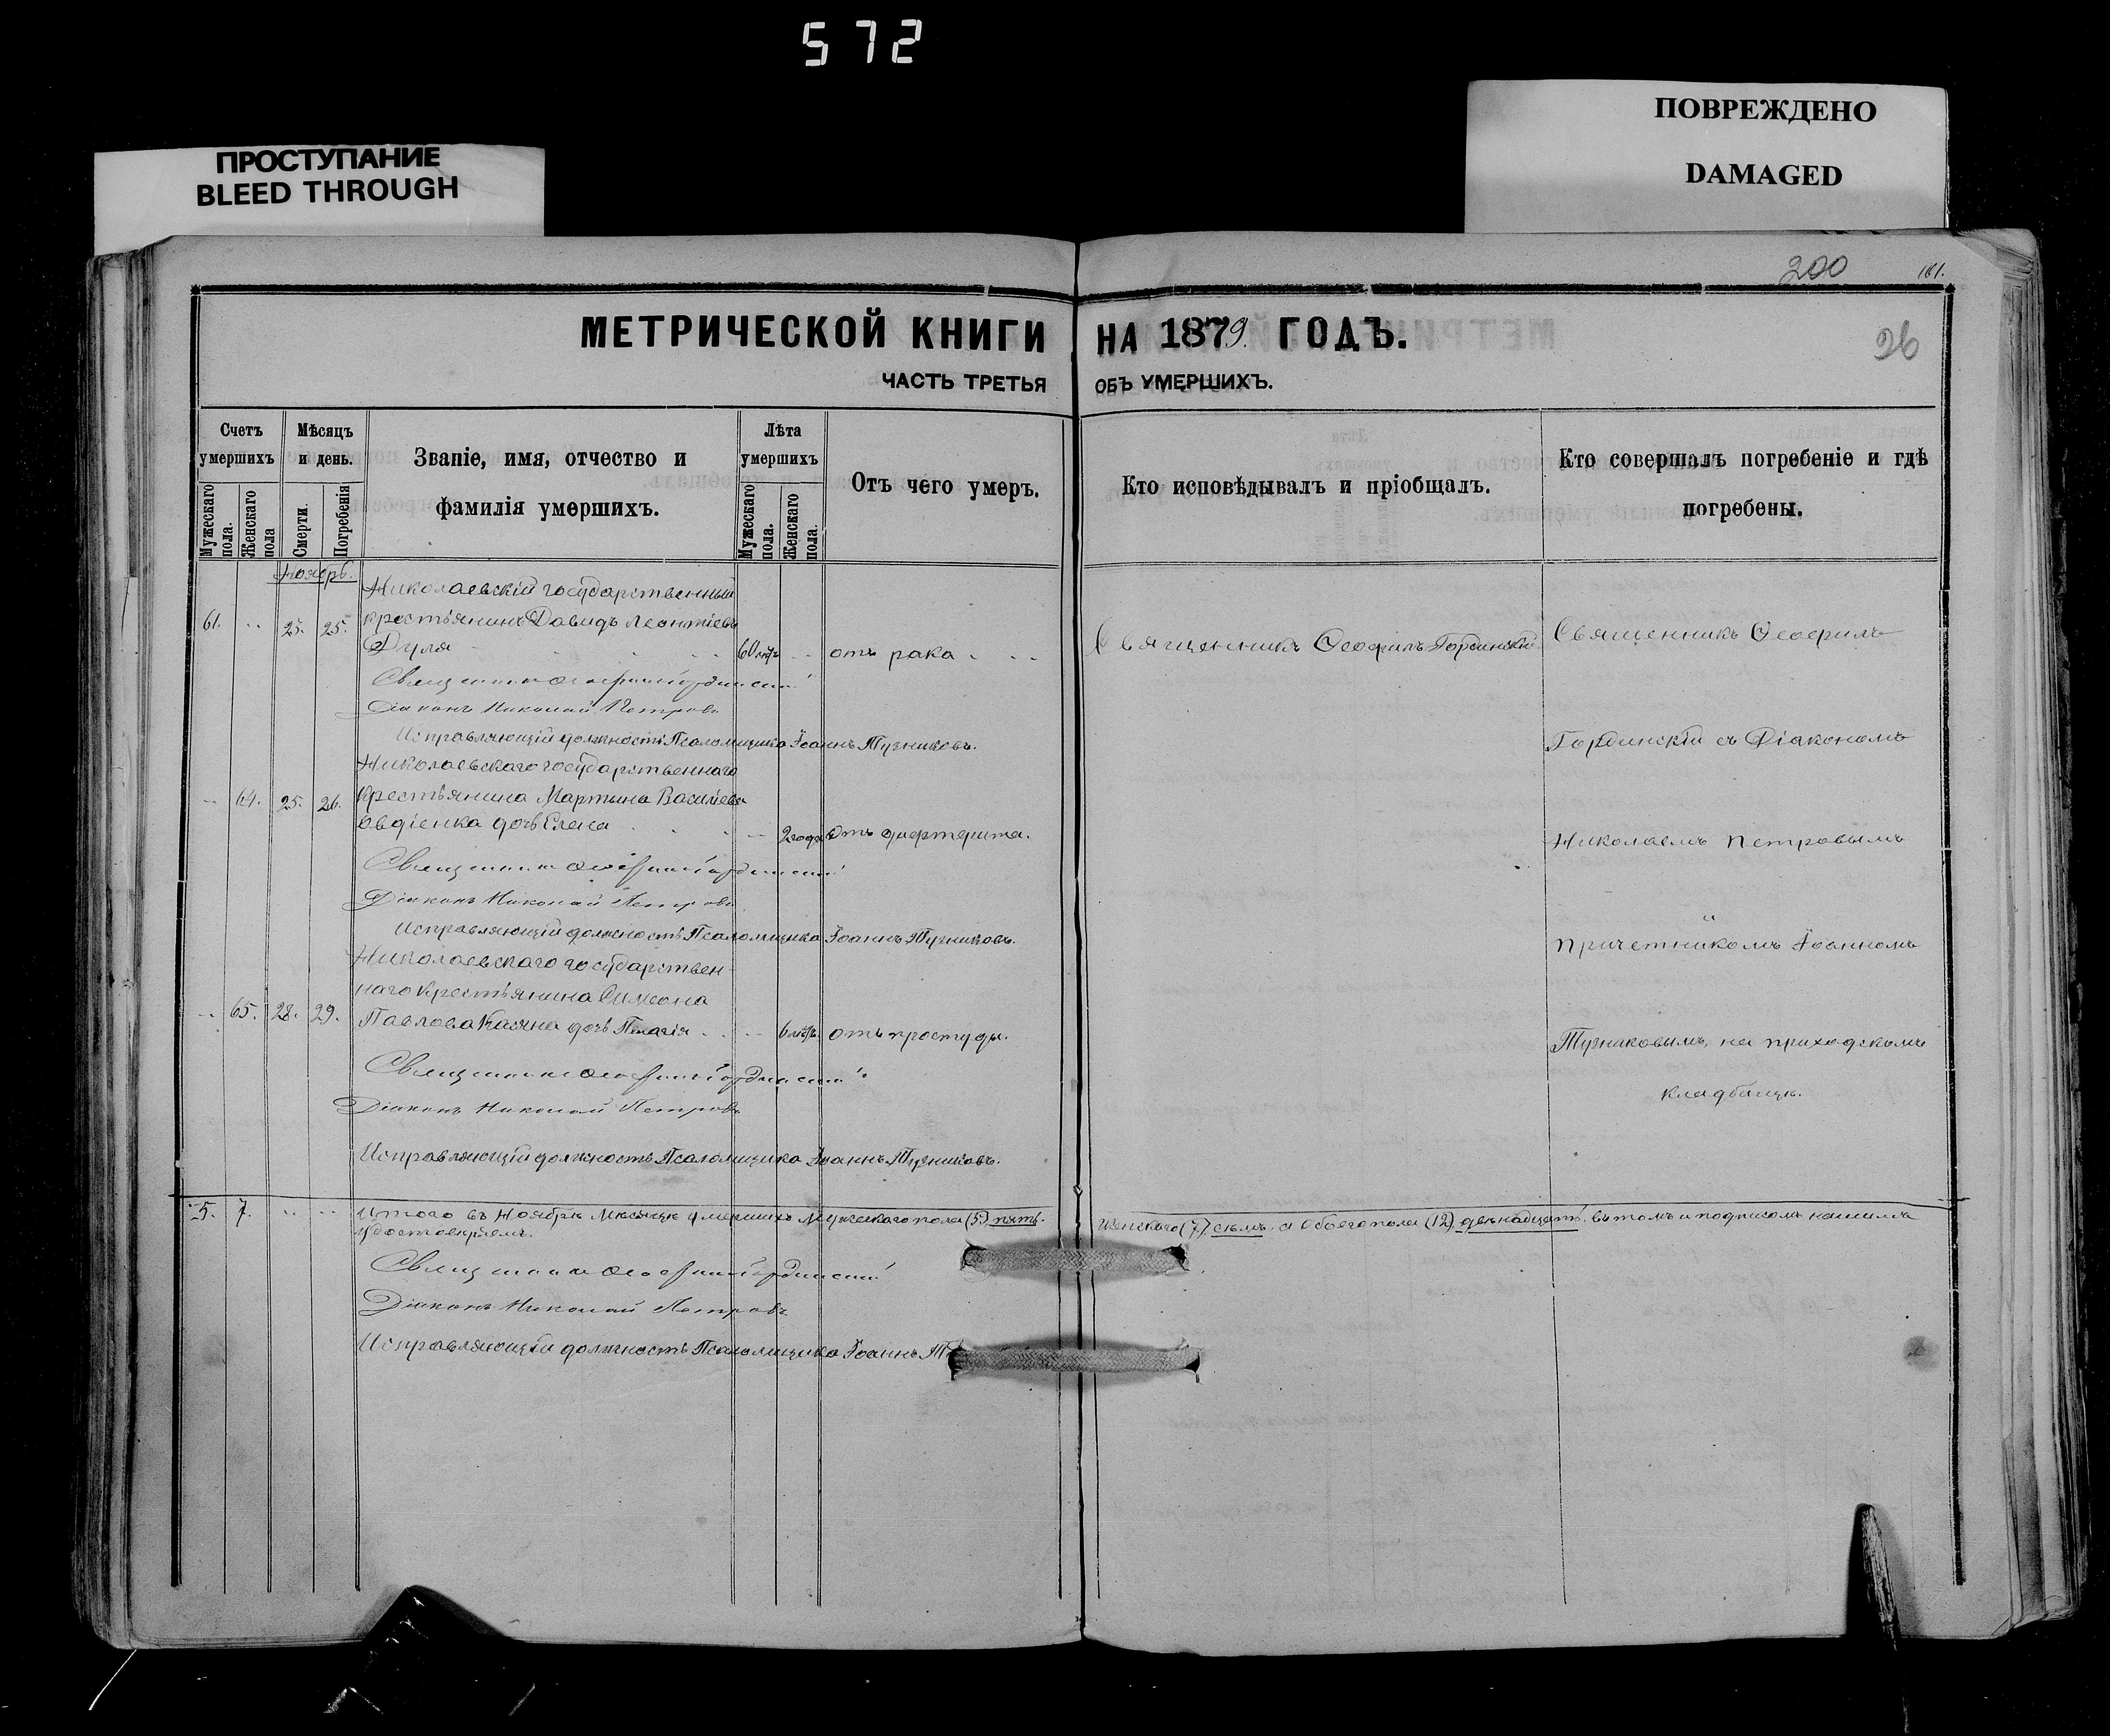 572
ПРОСТУПАНИЕ
BLEED THROUGH
ПОВРЕЖДЕНО
DAMAGED
200
181.
26
МЕТРИЧЕСКОЙ КНИГИ НА 1879. ГОДЪ.
ЧАСТЬ ТРЕТЬЯ ОБЪ УМЕРШИХЪ.
Счетъ умершихъ
Мужескаго пола.
Женскаго пола
Мѣсяцъ и день.
Смерти.
Погребенія
Званіе, имя, отчество и
фамилія умершихъ.
Лѣта умершихъ
Мужескаго пола.
Женскаго пола.
Отъ чего умеръ.
Кто исповѣдывалъ и пріобщалъ.
Кто совершалъ погребеніе и гдѣ
погребены.
Ноябрь.
Николаевскій государственный
61. 25. 25. крестьянинъ Давидъ Леонтіевъ
Дуля 60 лѣтъ отъ рака
Священникъ Ѳеофилъ Гординскій
Священникъ Ѳеофилъ Гординскій
Діаконъ Николай Петровъ
Исправляющій должность Псаломщика Іоаннъ Тучниковъ.
Николаевскаго государственнаго
64. 25. 26. крестьянина Мартина Васильева
Овдіенка дочь Елена 2 года Отъ дифтерита.
Священникъ Ѳеофилъ Гординскій
Діаконъ Николай Петровъ
Исправляющій должность Псаломщика Іоаннъ Тучниковъ.
Николаевскаго государствен-
наго крестьянина Симеона
65. 28. 29. Павлова дочь Пелагія 6 лѣтъ. отъ простуды.
Священникъ Ѳеофилъ Гординскій
Діаконъ Николай Петровъ
Исправляющій должность Псаломщика Іоаннъ Тучниковъ.
Священникъ Ѳеофилъ
Гординскій съ Діакономъ
Николаемъ Петровымъ
и
Причетникомъ Іоанномъ
Тучниковымъ, на приходскомъ
кладбищѣ.
5. 7. Итого въ Ноябрѣ Мѣсяцѣ умершихъ Мужескаго пола (5) пять. Женскаго (7) семь, а Обоего пола (12) двѣнадцать, въ томъ и подписомъ нашимъ
удостовѣряемъ.
Священникъ Ѳеофилъ Гординскій
Діаконъ Николай Петровъ
Исправляющій должность Псаломщика Іоаннъ